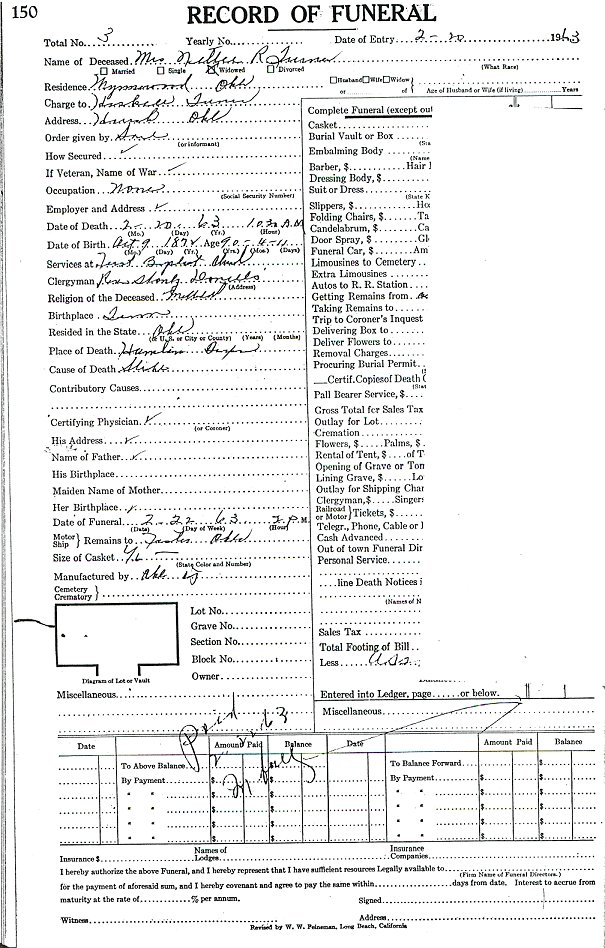 150
RECORD OF FUNERAL
Total No. 3 Yearly No. Date of Entry 2-20 1963
Name of Deceased Mrs. Nellie R Turner
Married Single Widowed Divorced (What Race)
Residence Wynnewood Okl Husband Wife Widow
or of Age of Husband or Wife (if living) Years
Charge to Turner
Address Okl
Order given by
(or informant)
How Secured ✓
If Veteran, Name of War ✓
Occupation None
(Social Security Number)
Employer and Address ✓
Date of Death 2-20-63 10:30 A.M
(Mo.) (Day) (Yr.) (Hour)
Date of Birth Oct. 9 1872 Age 90-4-11
(Mo.) (Day) (Yr.) (Yrs.) (Mos.) (Days)
Services at First Baptist Church
Clergyman
(Address)
Religion of the Deceased
Birthplace
Resided in the State Okl
(of U.S. or City or County) (Years) (Months)
Place of Death
Cause of Death
Contributory Causes
Certifying Physician ✓
(or Coroner)
His Address ✓
Name of Father ✓
His Birthplace
Maiden Name of Mother
Her Birthplace
Date of Funeral 2-22-63 2 P.M.
(Date) (Day of Week) (Hour)
Motor Ship Remains to Okl
Size of Casket
(State Color and Number)
Manufactured by Okl
Cemetery
Crematory
Lot No.
Grave No.
Section No.
Block No.
Owner
Diagram of Lot or Vault
Miscellaneous
Complete Funeral (except out
Casket
Burial Vault or Box
(Sta
Embalming Body
(Name
Barber, $ Hair
Dressing Body, $
Suit or Dress
(State K
Slippers, $ Ho
Folding Chairs, $ Ta
Candelabrum, $ Ca
Door Spray, $ Gl
Funeral Car, $ Am
Limousines to Cemetery
Extra Limousines
Autos to R. R. Station
Getting Remains from
Taking Remains to
Trip to Coroner's Inquest
Delivering Box to
Deliver Flowers to
Removal Charges
Procuring Burial Permit
Certif. Copies of Death (
(Stat
Pall Bearer Service, $
Gross Total for Sales Tax
Outlay for Lot
Cremation
Flowers, $ Palms, $
Rental of Tent, $ of T
Opening of Grave or Tom
Lining Grave, $ Lo
Outlay for Shipping Char
Clergyman, $ Singers
Railroad or Motor Tickets, $
Telegr., Phone, Cable or
Cash Advanced
Out of town Funeral Dir
Personal Service
line Death Notices i
(Names of N
Sales Tax
Total Footing of Bill
Less
Entered into Ledger, page or below.
Miscellaneous
Paid 63
Date Amount Paid Balance Date Amount Paid Balance
To Above Balance $ $ To Balance Forward $
By Payment $ $ By Payment $ $
" " $ $ " " $ $
" " $ $ " " $ $
" " $ $ " " $ $
" " $ $ " " $ $
Insurance $ Names of Lodges Insurance Companies
I hereby authorize the above Funeral, and I hereby represent that I have sufficient resources Legally available to
(Firm Name of Funeral Directors.)
for the payment of aforesaid sum, and I hereby covenant and agree to pay the same within days from date. Interest to accrue from
maturity at the rate of % per annum. Signed
Witness Address
Revised by W. W. Peineman, Long Beach, California